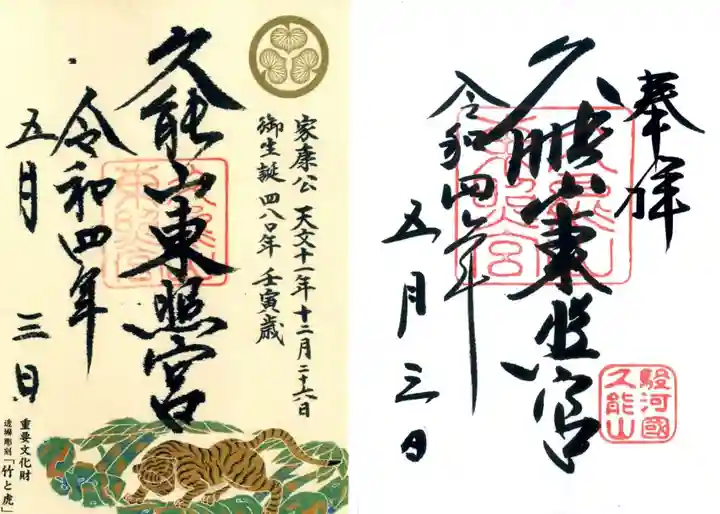 家康公 天文十一年十二月二十六日
御生誕 四八〇年 壬寅歳
久能山東照宮
令和四年
五月 三日
重要文化財
透塀彫刻「竹と虎」
奉拝
久能山東照宮
令和四年
五月三日
駿河國
久能山